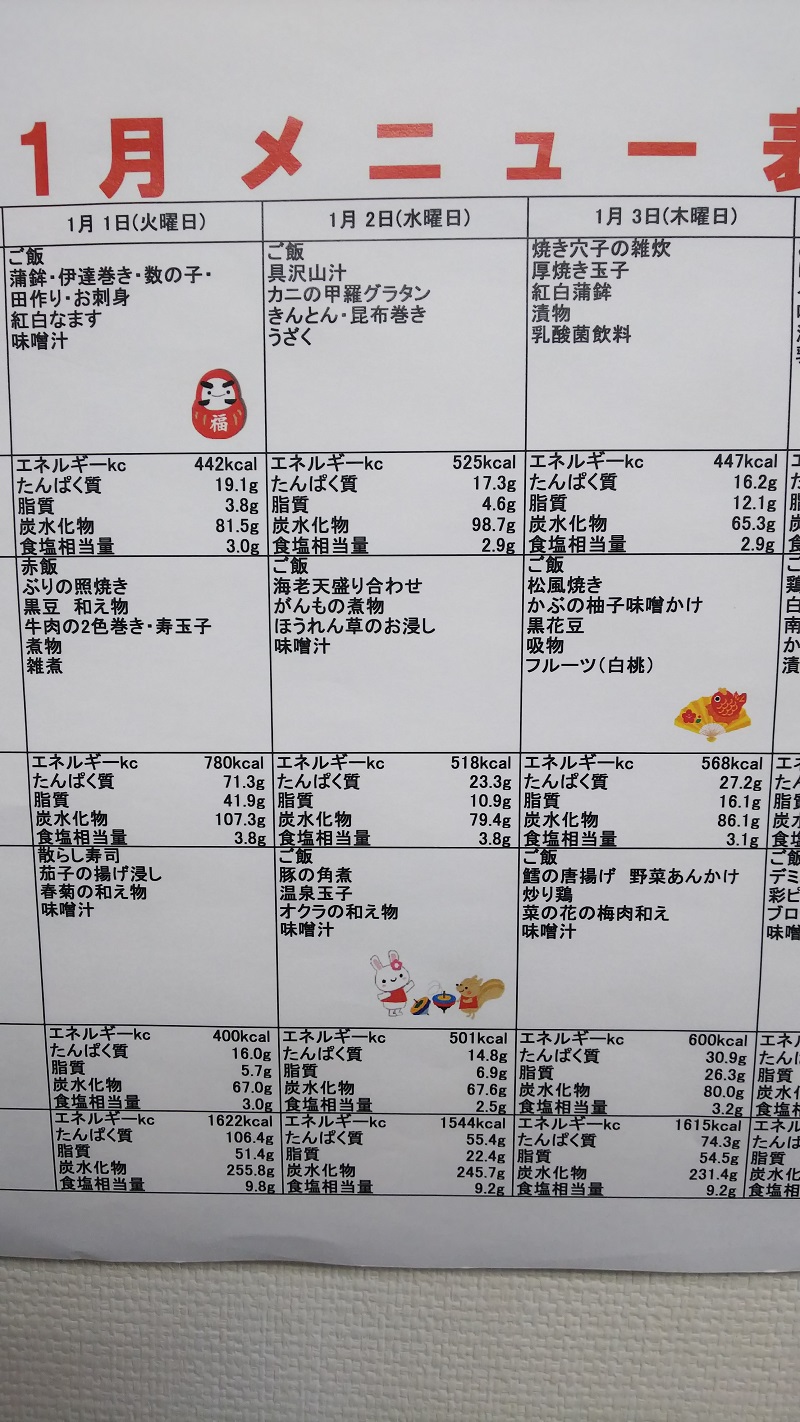 1月 メニュー表
1月 1日(火曜日)
1月 2日(水曜日)
1月 3日(木曜日)
ご飯
蒲鉾・伊達巻き・数の子・
田作り・お刺身
紅白なます
味噌汁
福
ご飯
具沢山汁
カニの甲羅グラタン
きんとん・昆布巻き
うざく
焼き穴子の雑炊
厚焼き玉子
紅白蒲鉾
漬物
乳酸菌飲料
エネルギーkc 442kcal
たんぱく質 19.1g
脂質 3.8g
炭水化物 81.5g
食塩相当量 3.0g
エネルギーkc 525kcal
たんぱく質 17.3g
脂質 4.6g
炭水化物 98.7g
食塩相当量 2.9g
エネルギーkc 447kcal
たんぱく質 16.2g
脂質 12.1g
炭水化物 65.3g
食塩相当量 2.9g
赤飯
ぶりの照焼き
黒豆 和え物
牛肉の2色巻き・寿玉子
煮物
雑煮
ご飯
海老天盛り合わせ
がんもの煮物
ほうれん草のお浸し
味噌汁
ご飯
松風焼き
かぶの柚子味噌かけ
黒花豆
吸物
フルーツ(白桃)
エネルギーkc 780kcal
たんぱく質 71.3g
脂質 41.9g
炭水化物 107.3g
食塩相当量 3.8g
エネルギーkc 518kcal
たんぱく質 23.3g
脂質 10.9g
炭水化物 79.4g
食塩相当量 3.8g
エネルギーkc 568kcal
たんぱく質 27.2g
脂質 16.1g
炭水化物 86.1g
食塩相当量 3.1g
散らし寿司
茄子の揚げ浸し
春菊の和え物
味噌汁
ご飯
豚の角煮
温泉玉子
オクラの和え物
味噌汁
ご飯
鱈の唐揚げ 野菜あんかけ
炒り鶏
菜の花の梅肉和え
味噌汁
エネルギーkc 400kcal
たんぱく質 16.0g
脂質 5.7g
炭水化物 67.0g
食塩相当量 3.0g
エネルギーkc 501kcal
たんぱく質 14.8g
脂質 6.9g
炭水化物 67.6g
食塩相当量 2.5g
エネルギーkc 600kcal
たんぱく質 30.9g
脂質 26.3g
炭水化物 80.0g
食塩相当量 3.2g
エネルギーkc 1622kcal
たんぱく質 106.4g
脂質 51.4g
炭水化物 255.8g
食塩相当量 9.8g
エネルギーkc 1544kcal
たんぱく質 55.4g
脂質 22.4g
炭水化物 245.7g
食塩相当量 9.2g
エネルギーkc 1615kcal
たんぱく質 74.3g
脂質 54.5g
炭水化物 231.4g
食塩相当量 9.2g